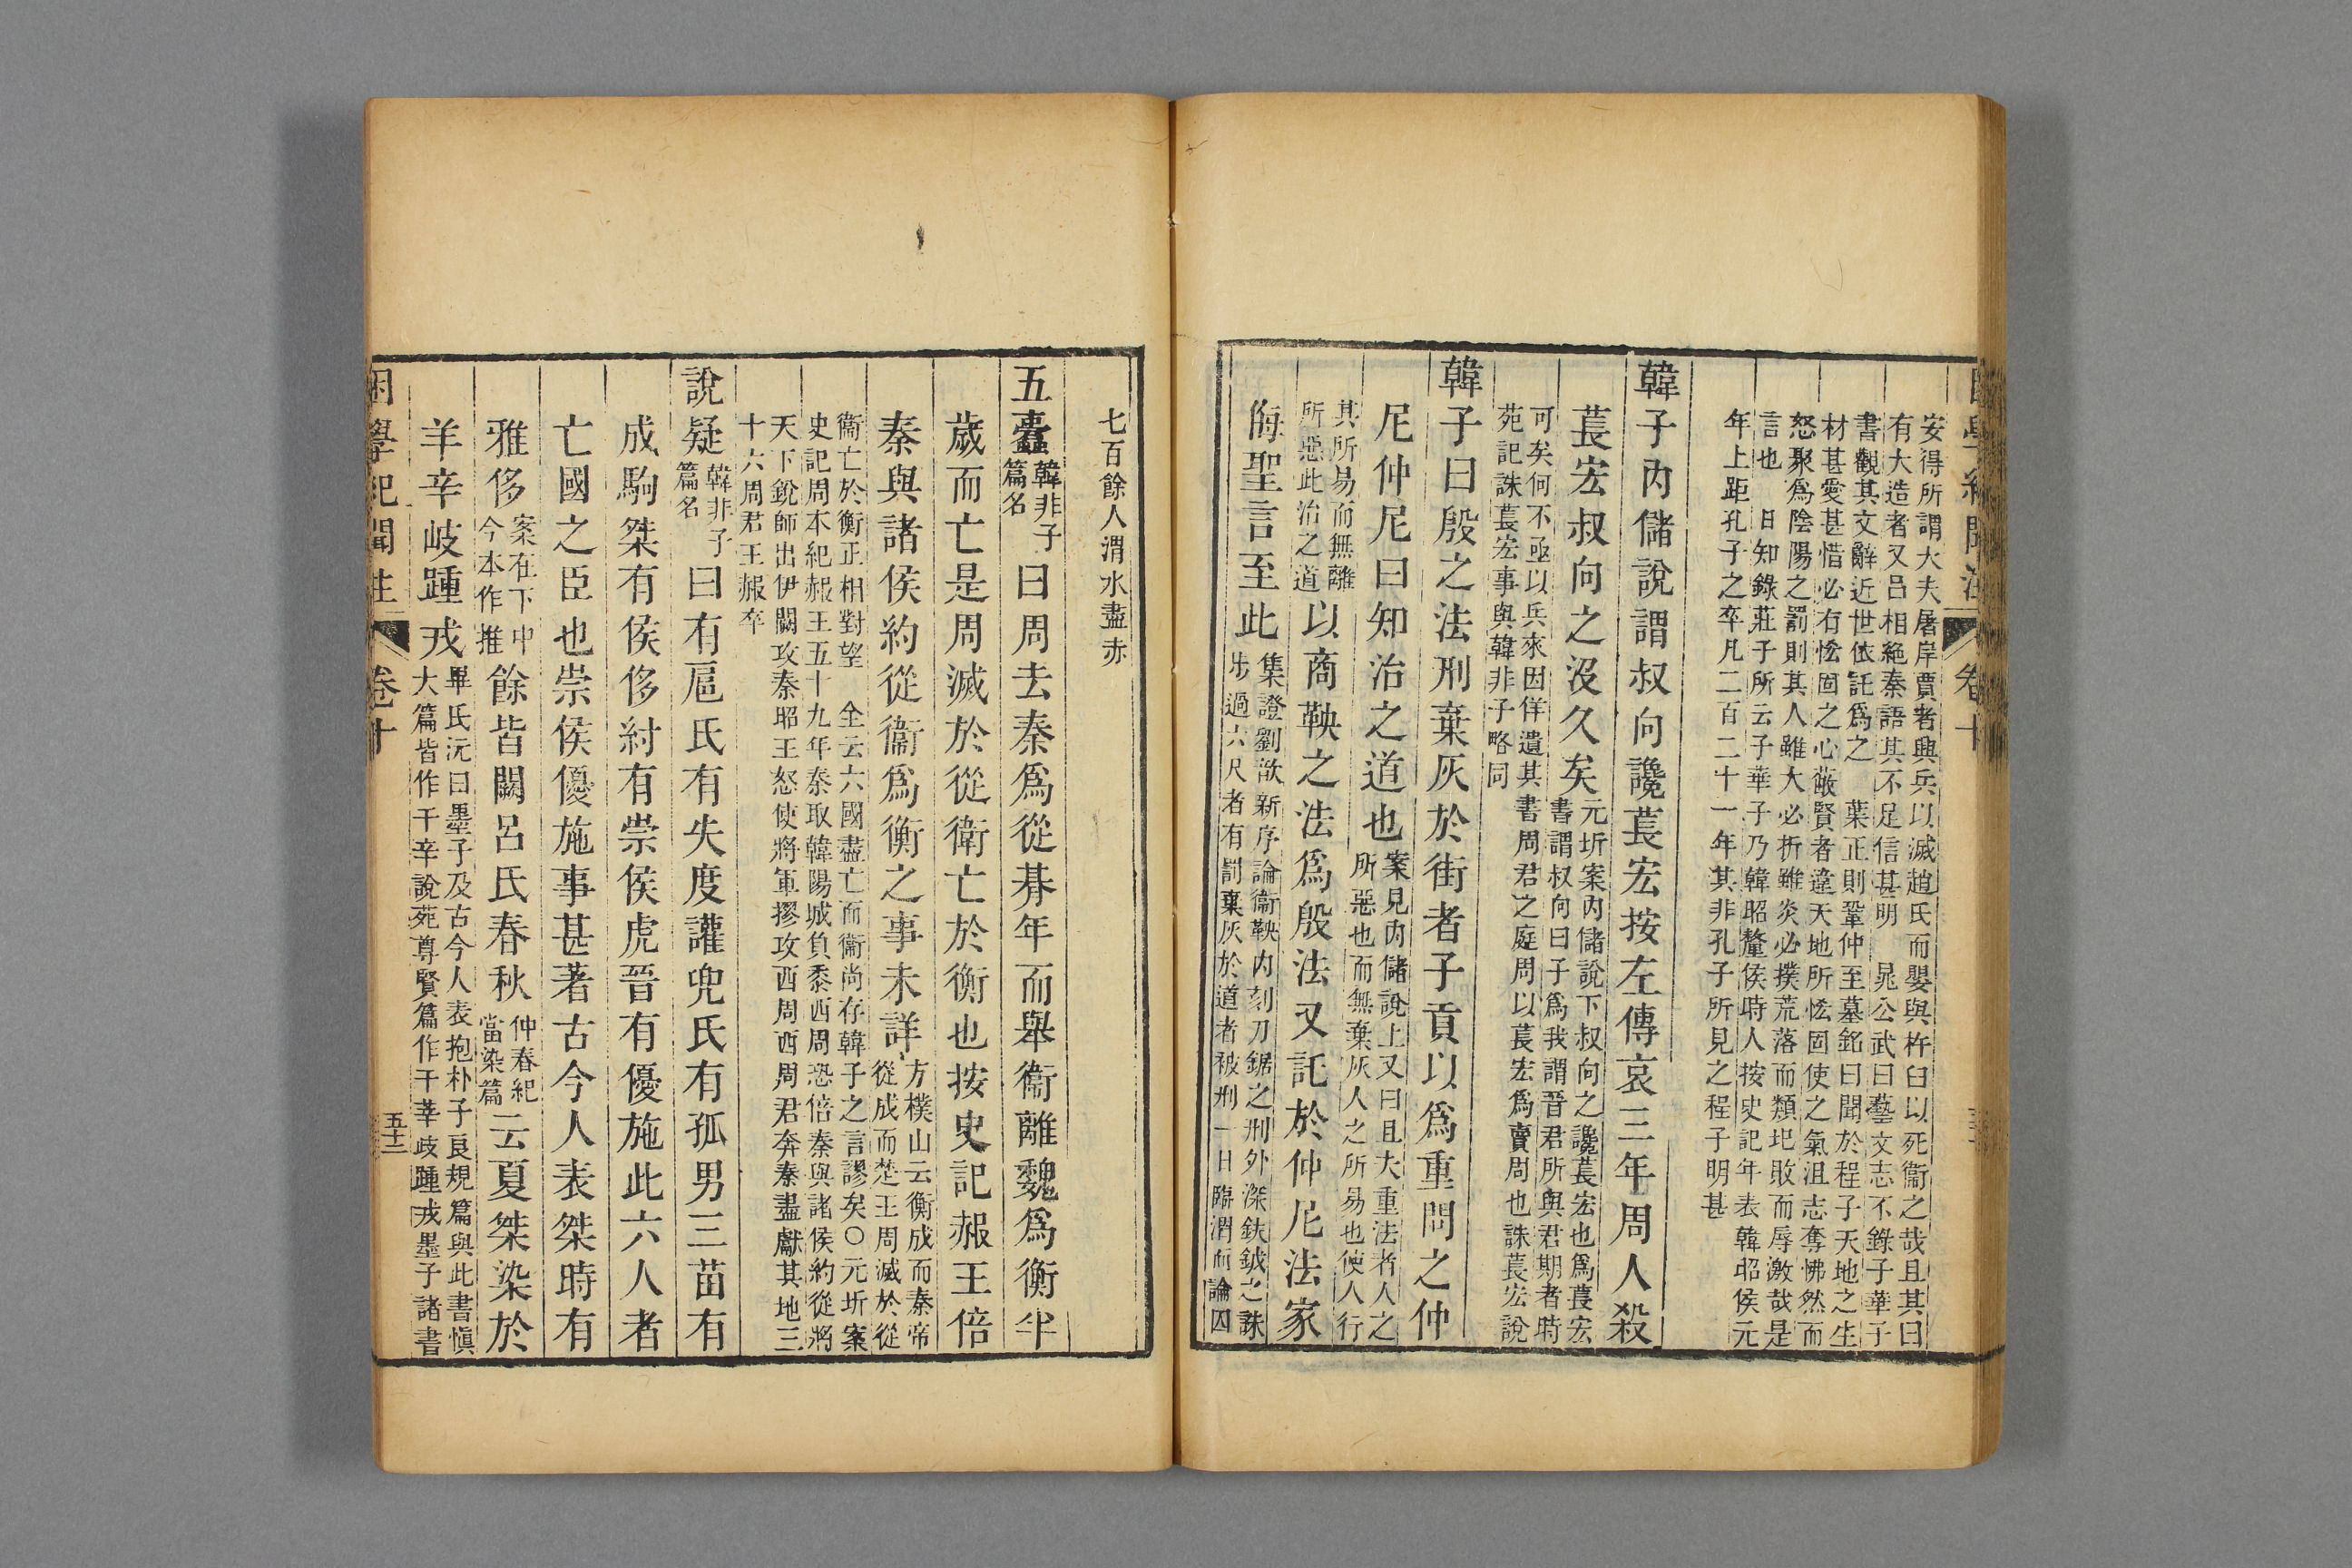 安得所謂大夫屠岸賈者興兵以滅趙氏而嬰與杵臼以死衞之哉且其曰
有大造者又呂相絶秦語其不足信甚明　晁公武曰藝文志不錄子華子
書觀其文辭近世依託爲之　葉正則鞏仲至墓銘曰聞於程子天地之生
材甚愛甚惜必有恡固之心蔽賢者違天地所恡固使之氣沮志奪怫然而
怒聚爲陰陽之罰則其人雖大必折雖炎必撲荒落而類圯敗而辱激哉是
言也　日知錄莊子所云子華子乃韓昭釐侯時人按史記年表韓昭侯元
年上距孔子之卒凡二百二十一年其非孔子所見之程子明甚
韓子內儲說謂叔向讒萇宏按左傳哀三年周人殺
萇宏叔向之沒久矣元圻案內儲說下叔向之讒萇宏也爲萇宏
書謂叔向曰子爲我謂晉君所與君期者時
可矣何不亟以兵來因佯遺其書周君之庭周以萇宏爲賣周也誅萇宏說
苑記誅萇宏事與韓非子略同
韓子曰殷之法刑棄灰於街者子貢以爲重問之仲
尼仲尼曰知治之道也案見內儲說上又曰且大重法者人之
所惡也而無棄灰人之所易也使人行
其所易而無離
所惡此治之道以商鞅之法爲殷法又託於仲尼法家
侮聖言至此集證劉歆新序論衞鞅內刻刀鋸之刑外深鈇鉞之誅
步過六尺者有罰棄灰於道者被刑一日臨渭而論囚
困學紀聞注　卷十
七百餘人渭水盡赤
五蠹韓非子
篇名曰周去秦爲從朞年而舉衞離魏爲衡半
歲而亡是周滅於從衛亡於衡也按史記赧王倍
秦與諸侯約從衞爲衡之事未詳方樸山云衡成而秦帝
從成而楚王周滅於從
衞亡於衡正相對望　全云六國盡亡而衞尚存韓子之言謬矣○元圻案
史記周本紀赧王五十九年秦取韓陽城負黍西周恐倍秦與諸侯約從將
天下銳師出伊闕攻秦昭王怒使將軍摎攻西周西周君奔秦盡獻其地三
十六周君王赧卒
說疑韓非子
篇名曰有扈氏有失度讙兜氏有孤男三苗有
成駒桀有侯侈紂有崇侯虎晉有優施此六人者
亡國之臣也崇侯優施事甚著古今人表桀時有
雅侈案在下中
今本作推餘皆闕呂氏春秋仲春紀
當染篇云夏桀染於
羊辛岐踵戎畢氏沅曰墨子及古今人表抱朴子良規篇與此書愼
大篇皆作干辛說苑尊賢篇作干莘歧踵戎墨子諸書
困學紀聞注　卷十　五十二